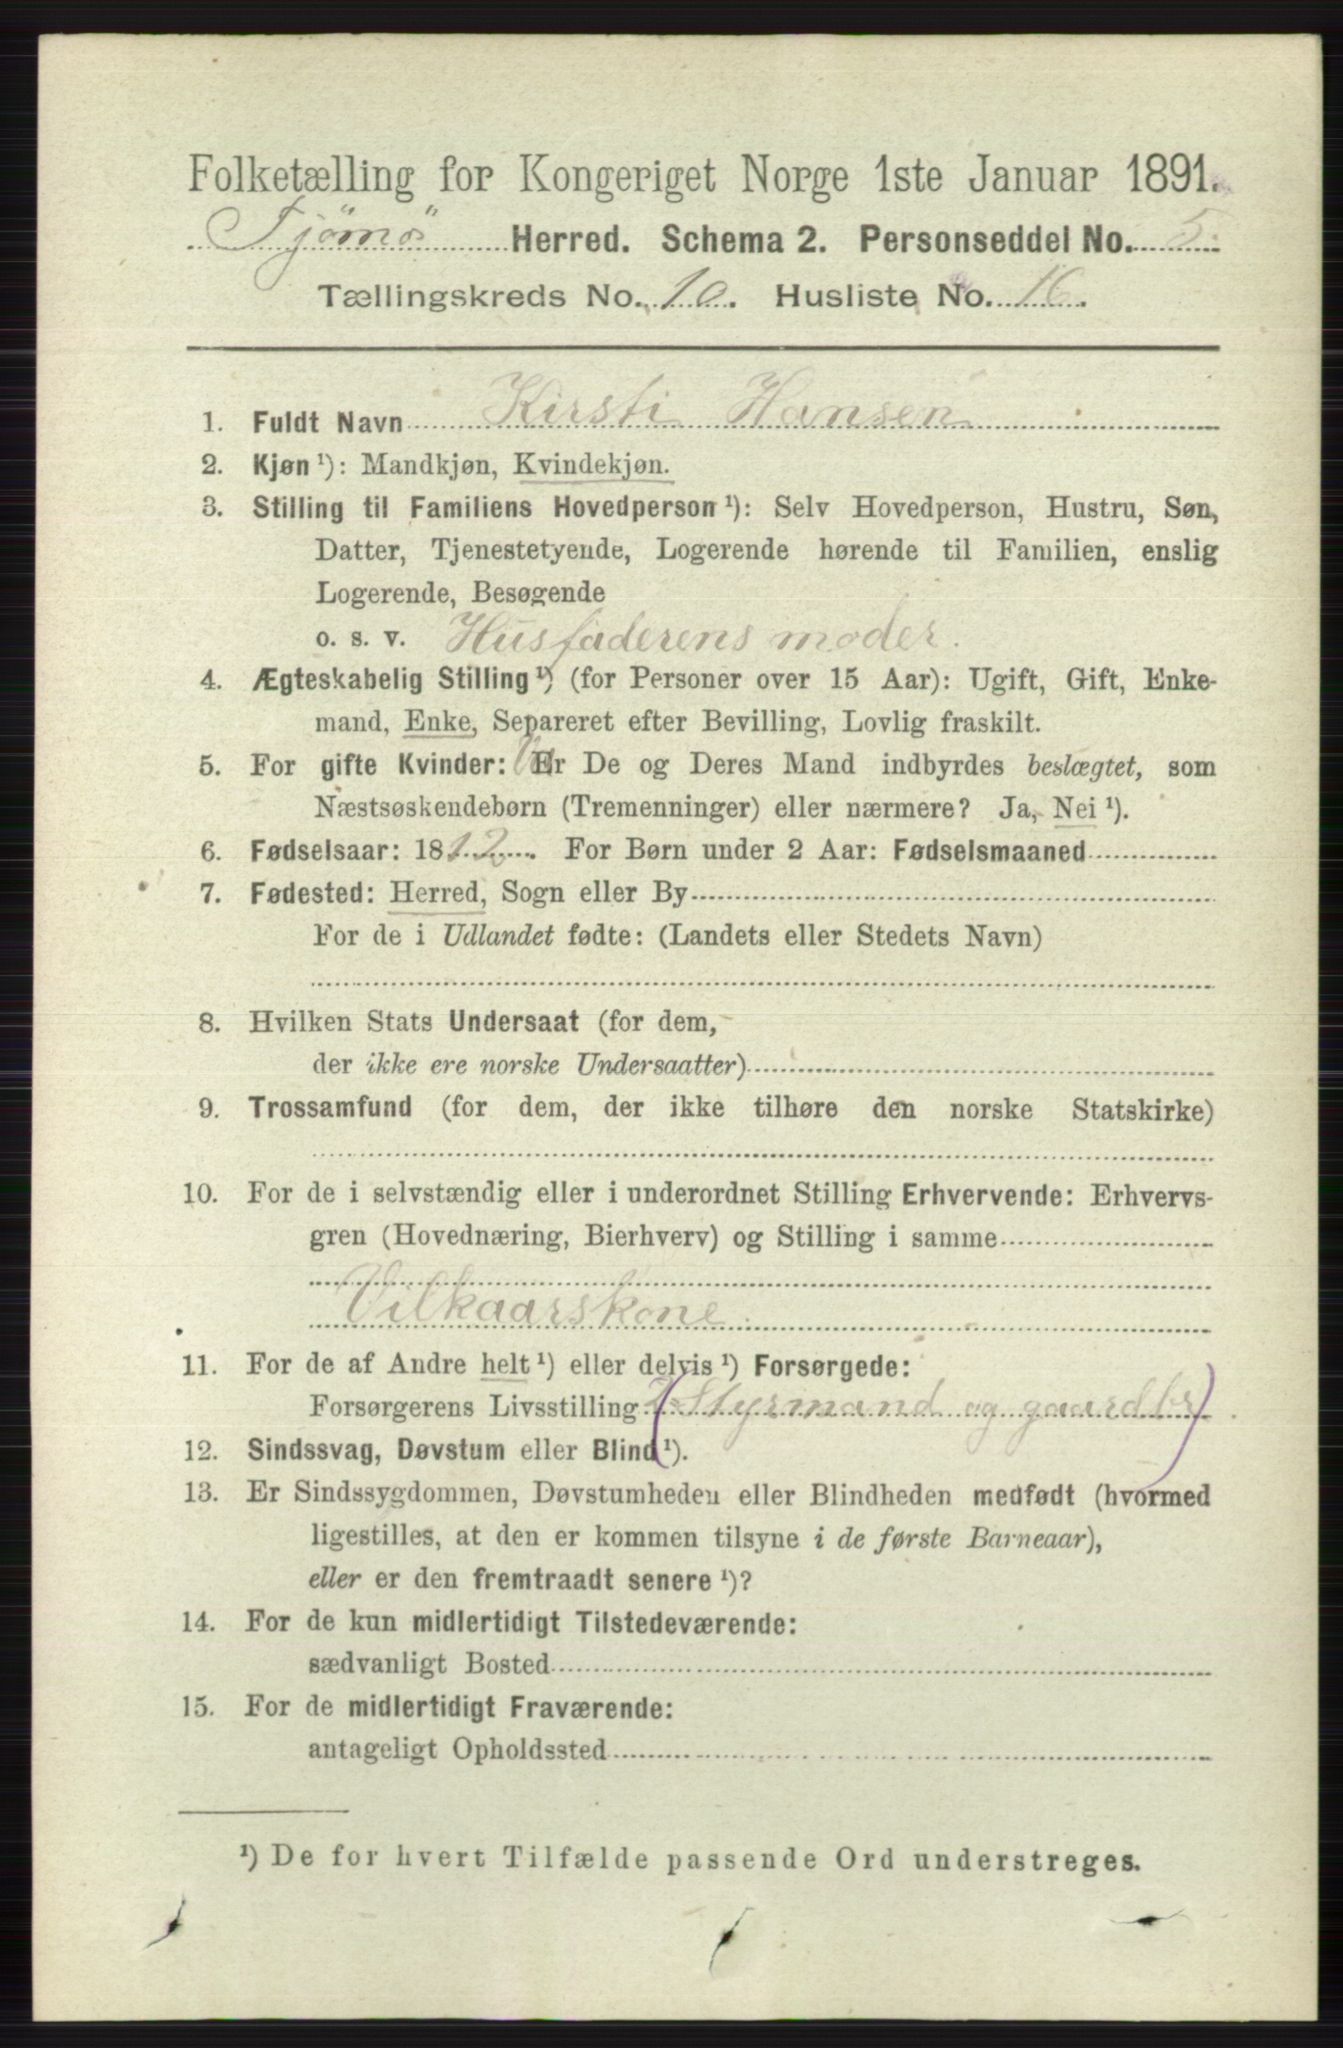 Folketælling for Kongeriget Norge 1ste Januar 1891.
Tjömö Herred. Schema 2. Personseddel No. 5.
Tællingskreds No. 10. Husliste No. 16.
1. Fuldt Navn Kirsti Hansen
2. Kjøn ¹): Mandkjøn, Kvindekjøn.
3. Stilling til Familiens Hovedperson ¹): Selv Hovedperson, Hustru, Søn,
Datter, Tjenestetyende, Logerende hørende til Familien, enslig
Logerende, Besøgende
o. s. v. Husfaderens moder.
4. Ægteskabelig Stilling ¹) (for Personer over 15 Aar): Ugift, Gift, Enke-
mand, Enke, Separeret efter Bevilling, Lovlig fraskilt.
5. For gifte Kvinder: Er De og Deres Mand indbyrdes beslægtet, som
Næstsøskendebørn (Tremenninger) eller nærmere? Ja, Nei ¹).
6. Fødselsaar: 1812. For Børn under 2 Aar: Fødselsmaaned
7. Fødested: Herred, Sogn eller By
For de i Udlandet fødte: (Landets eller Stedets Navn)
8. Hvilken Stats Undersaat (for dem,
der ikke ere norske Undersaatter)
9. Trossamfund (for dem, der ikke tilhøre den norske Statskirke)
10. For de i selvstændig eller i underordnet Stilling Erhvervende: Erhvervs-
gren (Hovednæring, Bierhverv) og Stilling i samme
Vilkaarskone.
11. For de af Andre helt ¹) eller delvis ¹) Forsørgede:
Forsørgerens Livsstilling (Styrmand og gaardbr)
12. Sindssvag, Døvstum eller Blind ¹).
13. Er Sindssygdommen, Døvstumheden eller Blindheden medfødt (hvormed
ligestilles, at den er kommen tilsyne i de første Barneaar),
eller er den fremtraadt senere ¹)?
14. For de kun midlertidigt Tilstedeværende:
sædvanligt Bosted
15. For de midlertidigt Fraværende:
antageligt Opholdssted
¹) De for hvert Tilfælde passende Ord understreges.